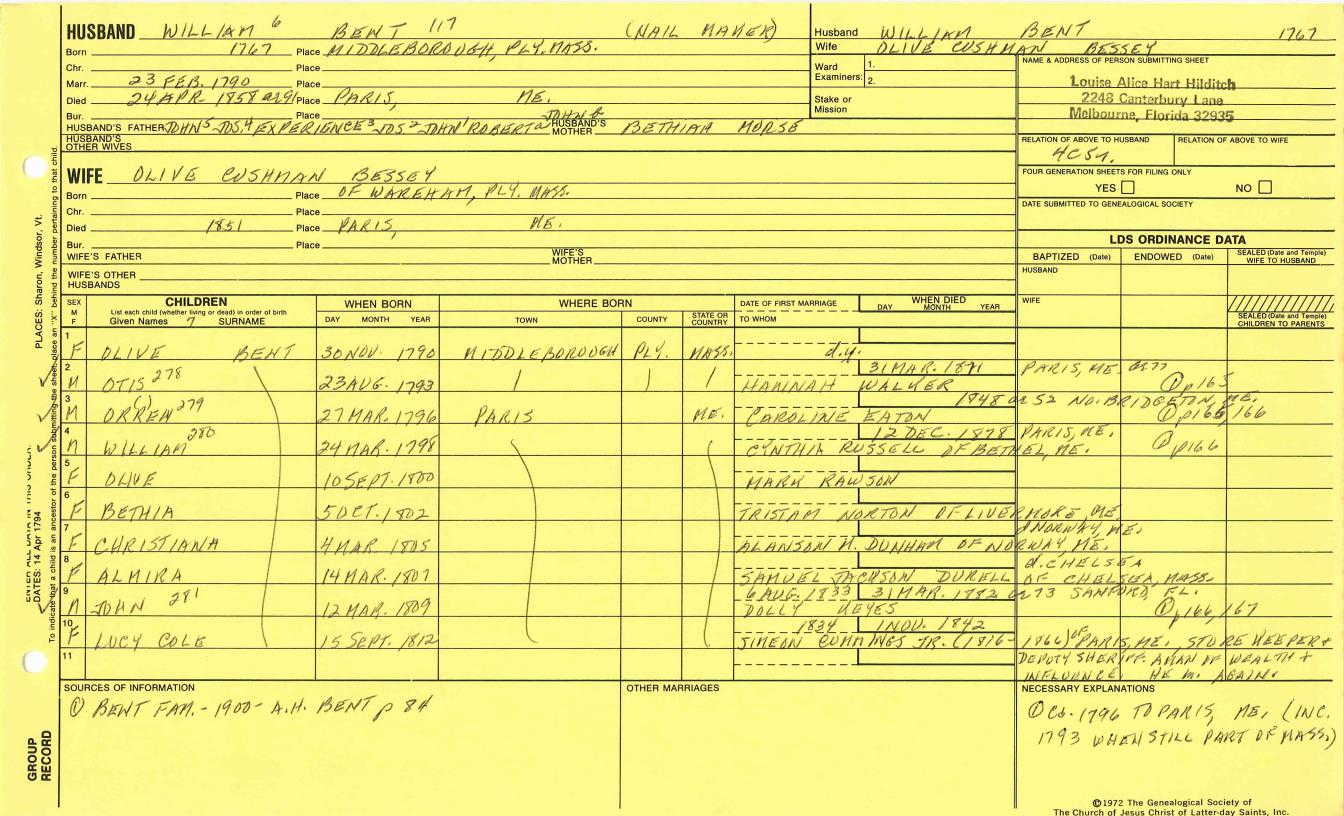 HUSBAND WILLIAM 6 BENT 117 (NAIL MAKER)
Born 1767 Place MIDDLEBOROUGH, PLY. MASS.
Chr. Place
Marr. 23 FEB. 1790 Place
Died 24 APR. 1858 ae 91 Place PARIS, ME.
Bur. Place
HUSBAND'S FATHER JOHN 5 JOS. 4 EXPERIENCE 3 JOS 2 JOHN 1 ROBERT a HUSBAND'S MOTHER JOHN & BETHIAH MORSE
HUSBAND'S OTHER WIVES
WIFE OLIVE CUSHMAN BESSEY
Born Place OF WAREHAM, PLY. MASS.
Chr. Place
Died 1851 Place PARIS, ME.
Bur. Place
WIFE'S FATHER WIFE'S MOTHER
WIFE'S OTHER HUSBANDS
Husband WILLIAM BENT 1767
Wife OLIVE CUSHMAN BESSEY
Ward Examiners: 1.
2.
Stake or Mission
NAME & ADDRESS OF PERSON SUBMITTING SHEET
Louise Alice Hart Hilditch
2248 Canterbury Lane
Melbourne, Florida 32935
RELATION OF ABOVE TO HUSBAND RELATION OF ABOVE TO WIFE
4C5r.
FOUR GENERATION SHEETS FOR FILING ONLY
YES NO
DATE SUBMITTED TO GENEALOGICAL SOCIETY
LDS ORDINANCE DATA
BAPTIZED (Date) ENDOWED (Date) SEALED (Date and Temple) WIFE TO HUSBAND
HUSBAND
WIFE
SEALED (Date and Temple) CHILDREN TO PARENTS
SEX M F CHILDREN WHEN BORN WHERE BORN DATE OF FIRST MARRIAGE WHEN DIED
List each child (whether living or dead) in order of birth
Given Names 7 SURNAME DAY MONTH YEAR TOWN COUNTY STATE OR COUNTRY TO WHOM DAY MONTH YEAR
1 F OLIVE BENT 30 NOV. 1790 MIDDLEBOROUGH PLY. MASS. d.y.
2 M OTIS 278 23 AUG. 1793 31 MAR. 1871 PARIS, ME. ae 77
HANNAH WALKER ① p165
3 M ORREN 279 27 MAR. 1796 PARIS ME. 1848 ae 52 NO. BRIDGETON, ME.
CAROLINE EATON ① p165, 166
4 M WILLIAM 280 24 MAR. 1798 12 DEC. 1878 PARIS, ME.
CYNTHIA RUSSELL OF BETHEL, ME. ① p166
5 F OLIVE 10 SEPT. 1800 MARK RAWSON
6 F BETHIA 5 OCT. 1802 TRISTAM NORTON OF LIVERMORE, ME.
7 F CHRISTIANA 4 MAR 1805 d NORWAY, ME.
ALANSON M. DUNHAM OF NORWAY, ME.
8 F ALMIRA 14 MAR. 1807 d. CHELSEA
SAMUEL JACKSON DURELL OF CHELSEA, MASS.
9 M JOHN 281 12 MAR. 1809 6 AUG. 1833 31 MAR. 1882 ae 73 SANFORD, FL.
DOLLY KEYES ① p166, 167
10 F LUCY COLE 15 SEPT. 1812 1834 1 NOV. 1842
SIMEON CUMMINGS JR. (1816-1866) OF PARIS, ME, STORE KEEPER +
11 DEPUTY SHERIFF. A MAN OF WEALTH +
INFLUENCE. HE m. AGAIN.
SOURCES OF INFORMATION
① BENT FAM. - 1900 - A.H. BENT p 84
OTHER MARRIAGES
NECESSARY EXPLANATIONS
① Ca. 1796 TO PARIS, ME. (INC.
1793 WHEN STILL PART OF MASS.)
©1972 The Genealogical Society of
The Church of Jesus Christ of Latter-day Saints, Inc.
PLACES: Sharon, Windsor, Vt.
ENTER ALL DATA IN THIS ORDER
DATES: 14 Apr 1794
To indicate that a child is an ancestor of the person submitting the sheet, place an "X" behind the number pertaining to that child.
GROUP RECORD